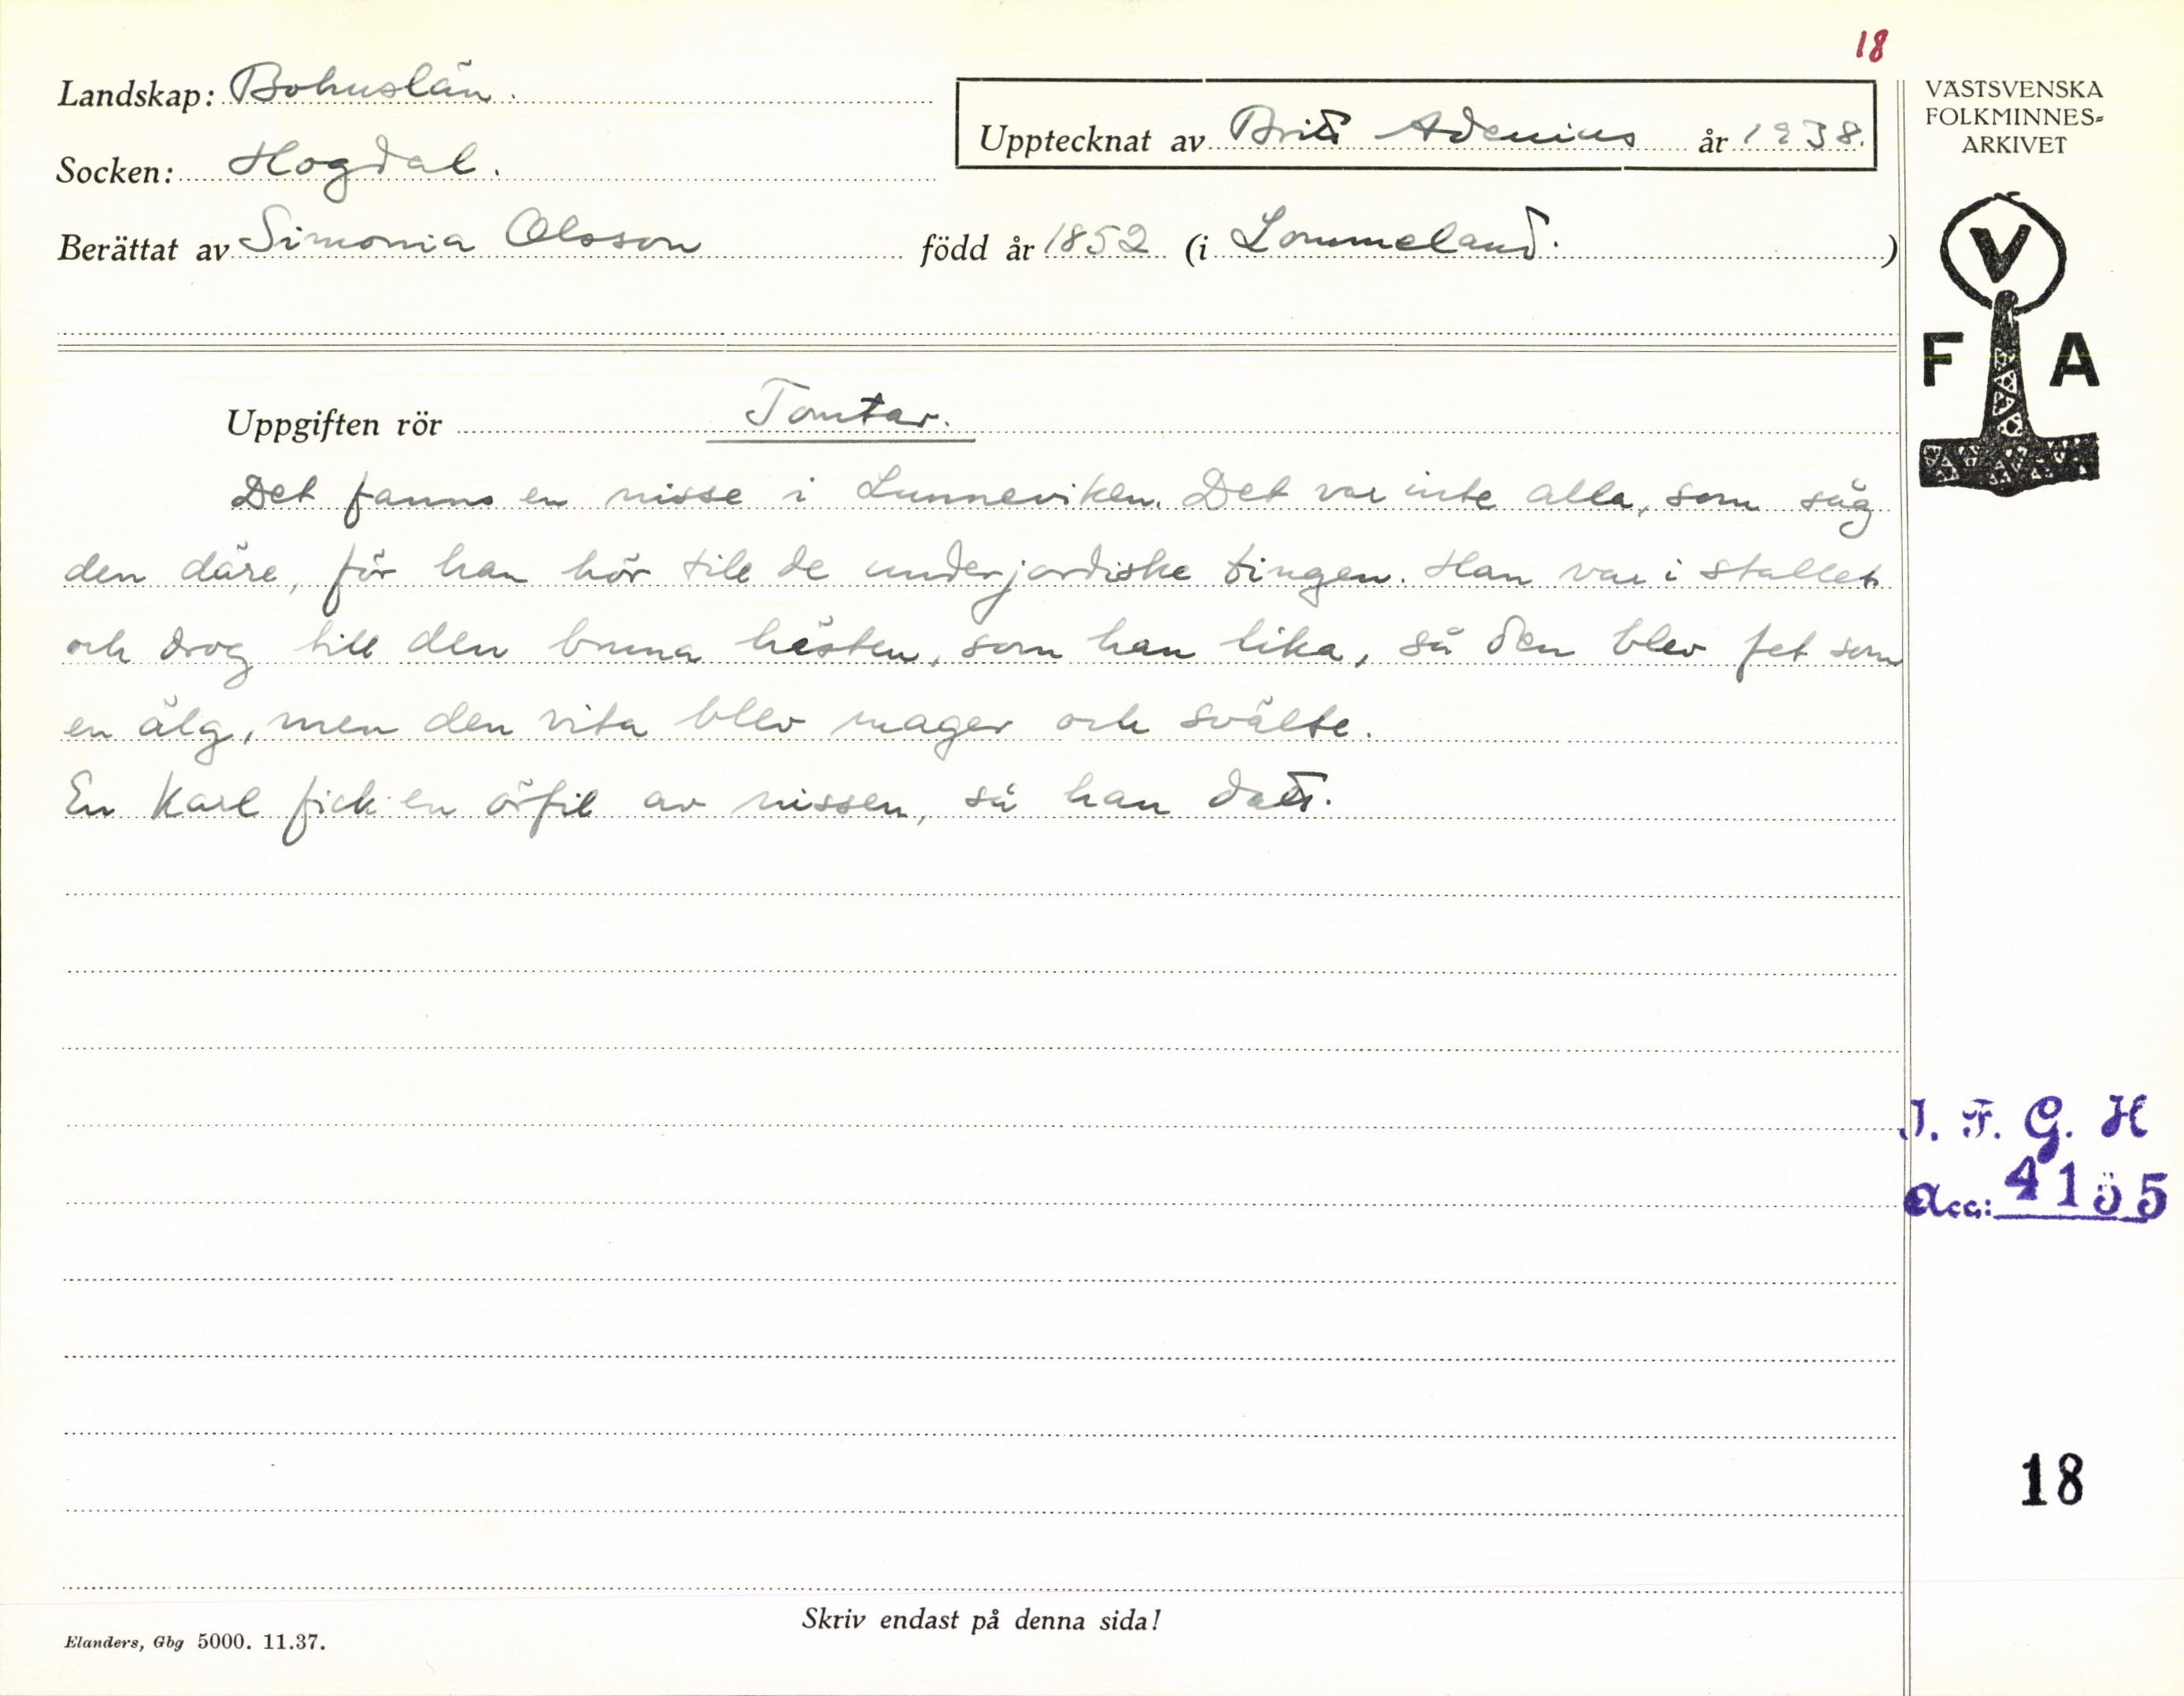 18
Landskap: Bohuslän.
Socken: Hogdal.
Upptecknat av Britt Adenius år 1938.
Berättat av Simonia Olsson född år 1852 (i Lommeland.)
VÄSTSVENSKA
FOLKMINNES=
ARKIVET
V
F A
Uppgiften rör Tomtar.
Det fanns en nisse i Lunneviken. Det var inte alla, som såg
den däre, för han hör till de underjordiske tingen. Han var i stallet
och drog till den bruna hästen, som han lika, så den blev fet som
en älg, men den vita blev mager och svälte.
En Karl fick en örfil av nissen, så han datt.
I. F. G. H
Acc: 4155
18
Skriv endast på denna sida!
Elanders, Gbg 5000. 11.37.